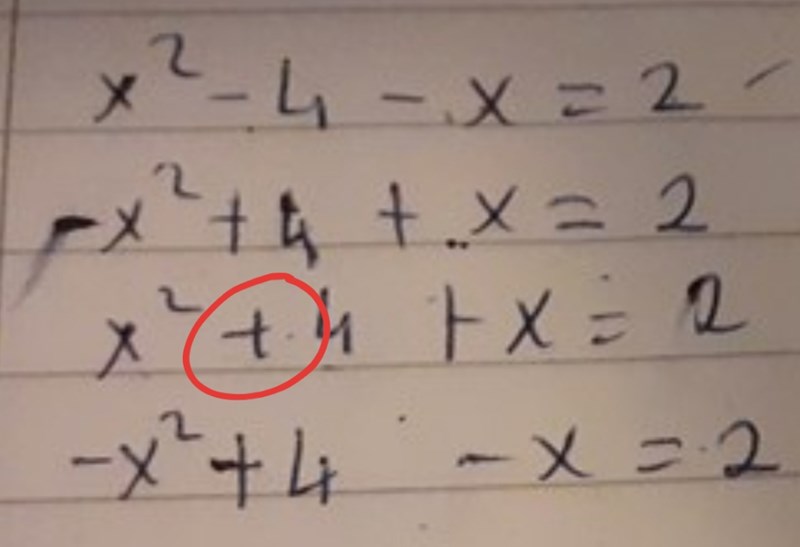 x² - 4 - x = 2
-x² + 4 + x = 2
x² + 4 + x = 2
-x² + 4 - x = 2